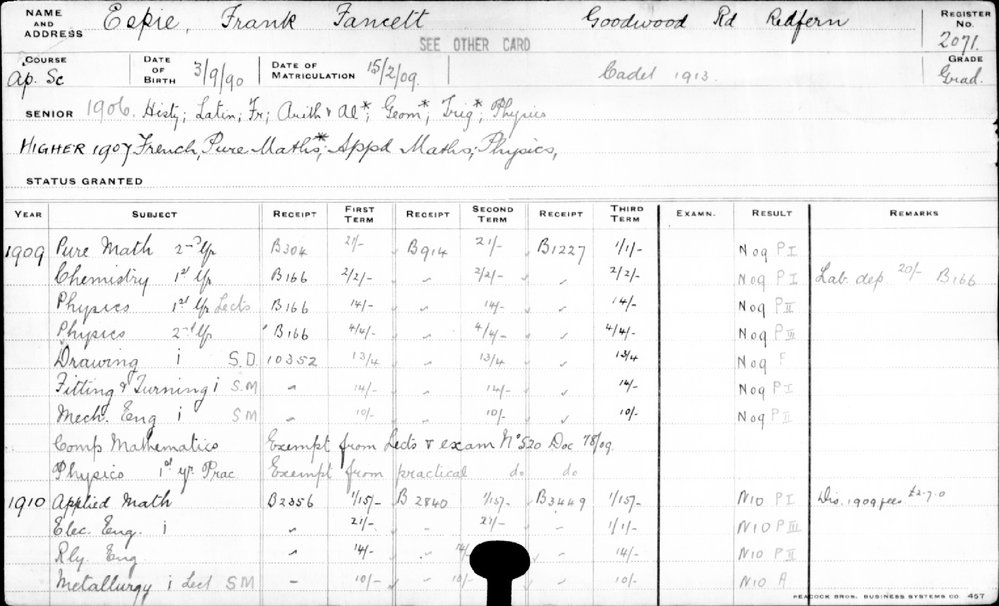 NAME AND ADDRESS Espie, Frank Fancett Goodwood Rd Redfern REGISTER No. 2071
SEE OTHER CARD
COURSE Ap. Sc DATE OF BIRTH 3/9/90 DATE OF MATRICULATION 15/2/09 Cadet 1913. GRADE Grad.
SENIOR 1906. Histy; Latin; Fr; Arith & Al*; Geom*; Trig*; Physics
HIGHER 1907 French, Pure Maths*; Appd Maths; Physics,
STATUS GRANTED
YEAR SUBJECT RECEIPT FIRST TERM RECEIPT SECOND TERM RECEIPT THIRD TERM EXAMN. RESULT REMARKS
1909 Pure Math 2nd Yr B304 21/- B914 21/- B1227 1/1/- N09 P I
Chemistry 1st Yr B166 2/2/- " 2/2/- " 2/2/- N09 P I Lab. dep 20/- B166
Physics 1st Yr Lects B166 14/- " 14/- " 14/- N09 P II
Physics 2nd Yr B166 4/4/- " 4/4/- " 4/4/- N09 P III
Drawing i S.D. 10352 13/4 " 13/4 " 13/4 N09 F
Fitting & Turning i S.M " 14/- " 14/- " 14/- N09 P I
Mech. Eng i S M " 10/- " 10/- " 10/- N09 P II
Comp Mathematics Exempt from Lects & exam No 520 Doc 78/09.
Physics 1st yr. Prac. Exempt from practical do do
1910 Applied Math B2356 1/15/- B 2840 1/15/- B3449 1/15/- N10 P I Dis. 1909 fees £2-7-0
Elec. Eng. i " 21/- " 21/- " 1/1/- N10 P III
Rly. Eng " 14/- " 14/- 14/- N10 P II
Metallurgy i Lect S M " 10/- " 10/- 10/- N10 A
PEACOCK BROS. BUSINESS SYSTEMS CO. 457